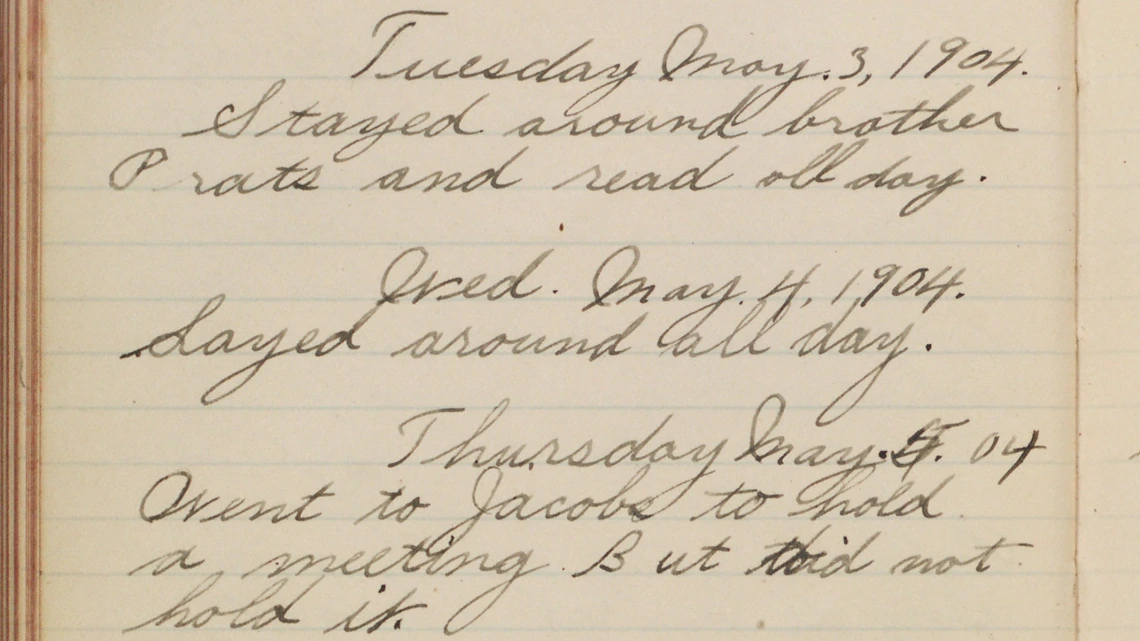 Tuesday May. 3, 1904.
Stayed around brother
Prats and read all day.
Wed. May. 4, 1904.
Layed around all day.
Thursday May. 5. 04
Went to Jacobs to hold
a meeting But did not
hold it.